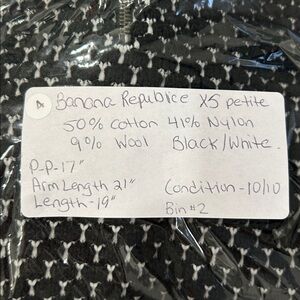 A Banana Republice XS petite
50% Cotton 41% Nylon
9% Wool Black/White
P-P-17"
Arm Length 21" Condition-10/10
Length-19" Bin #2